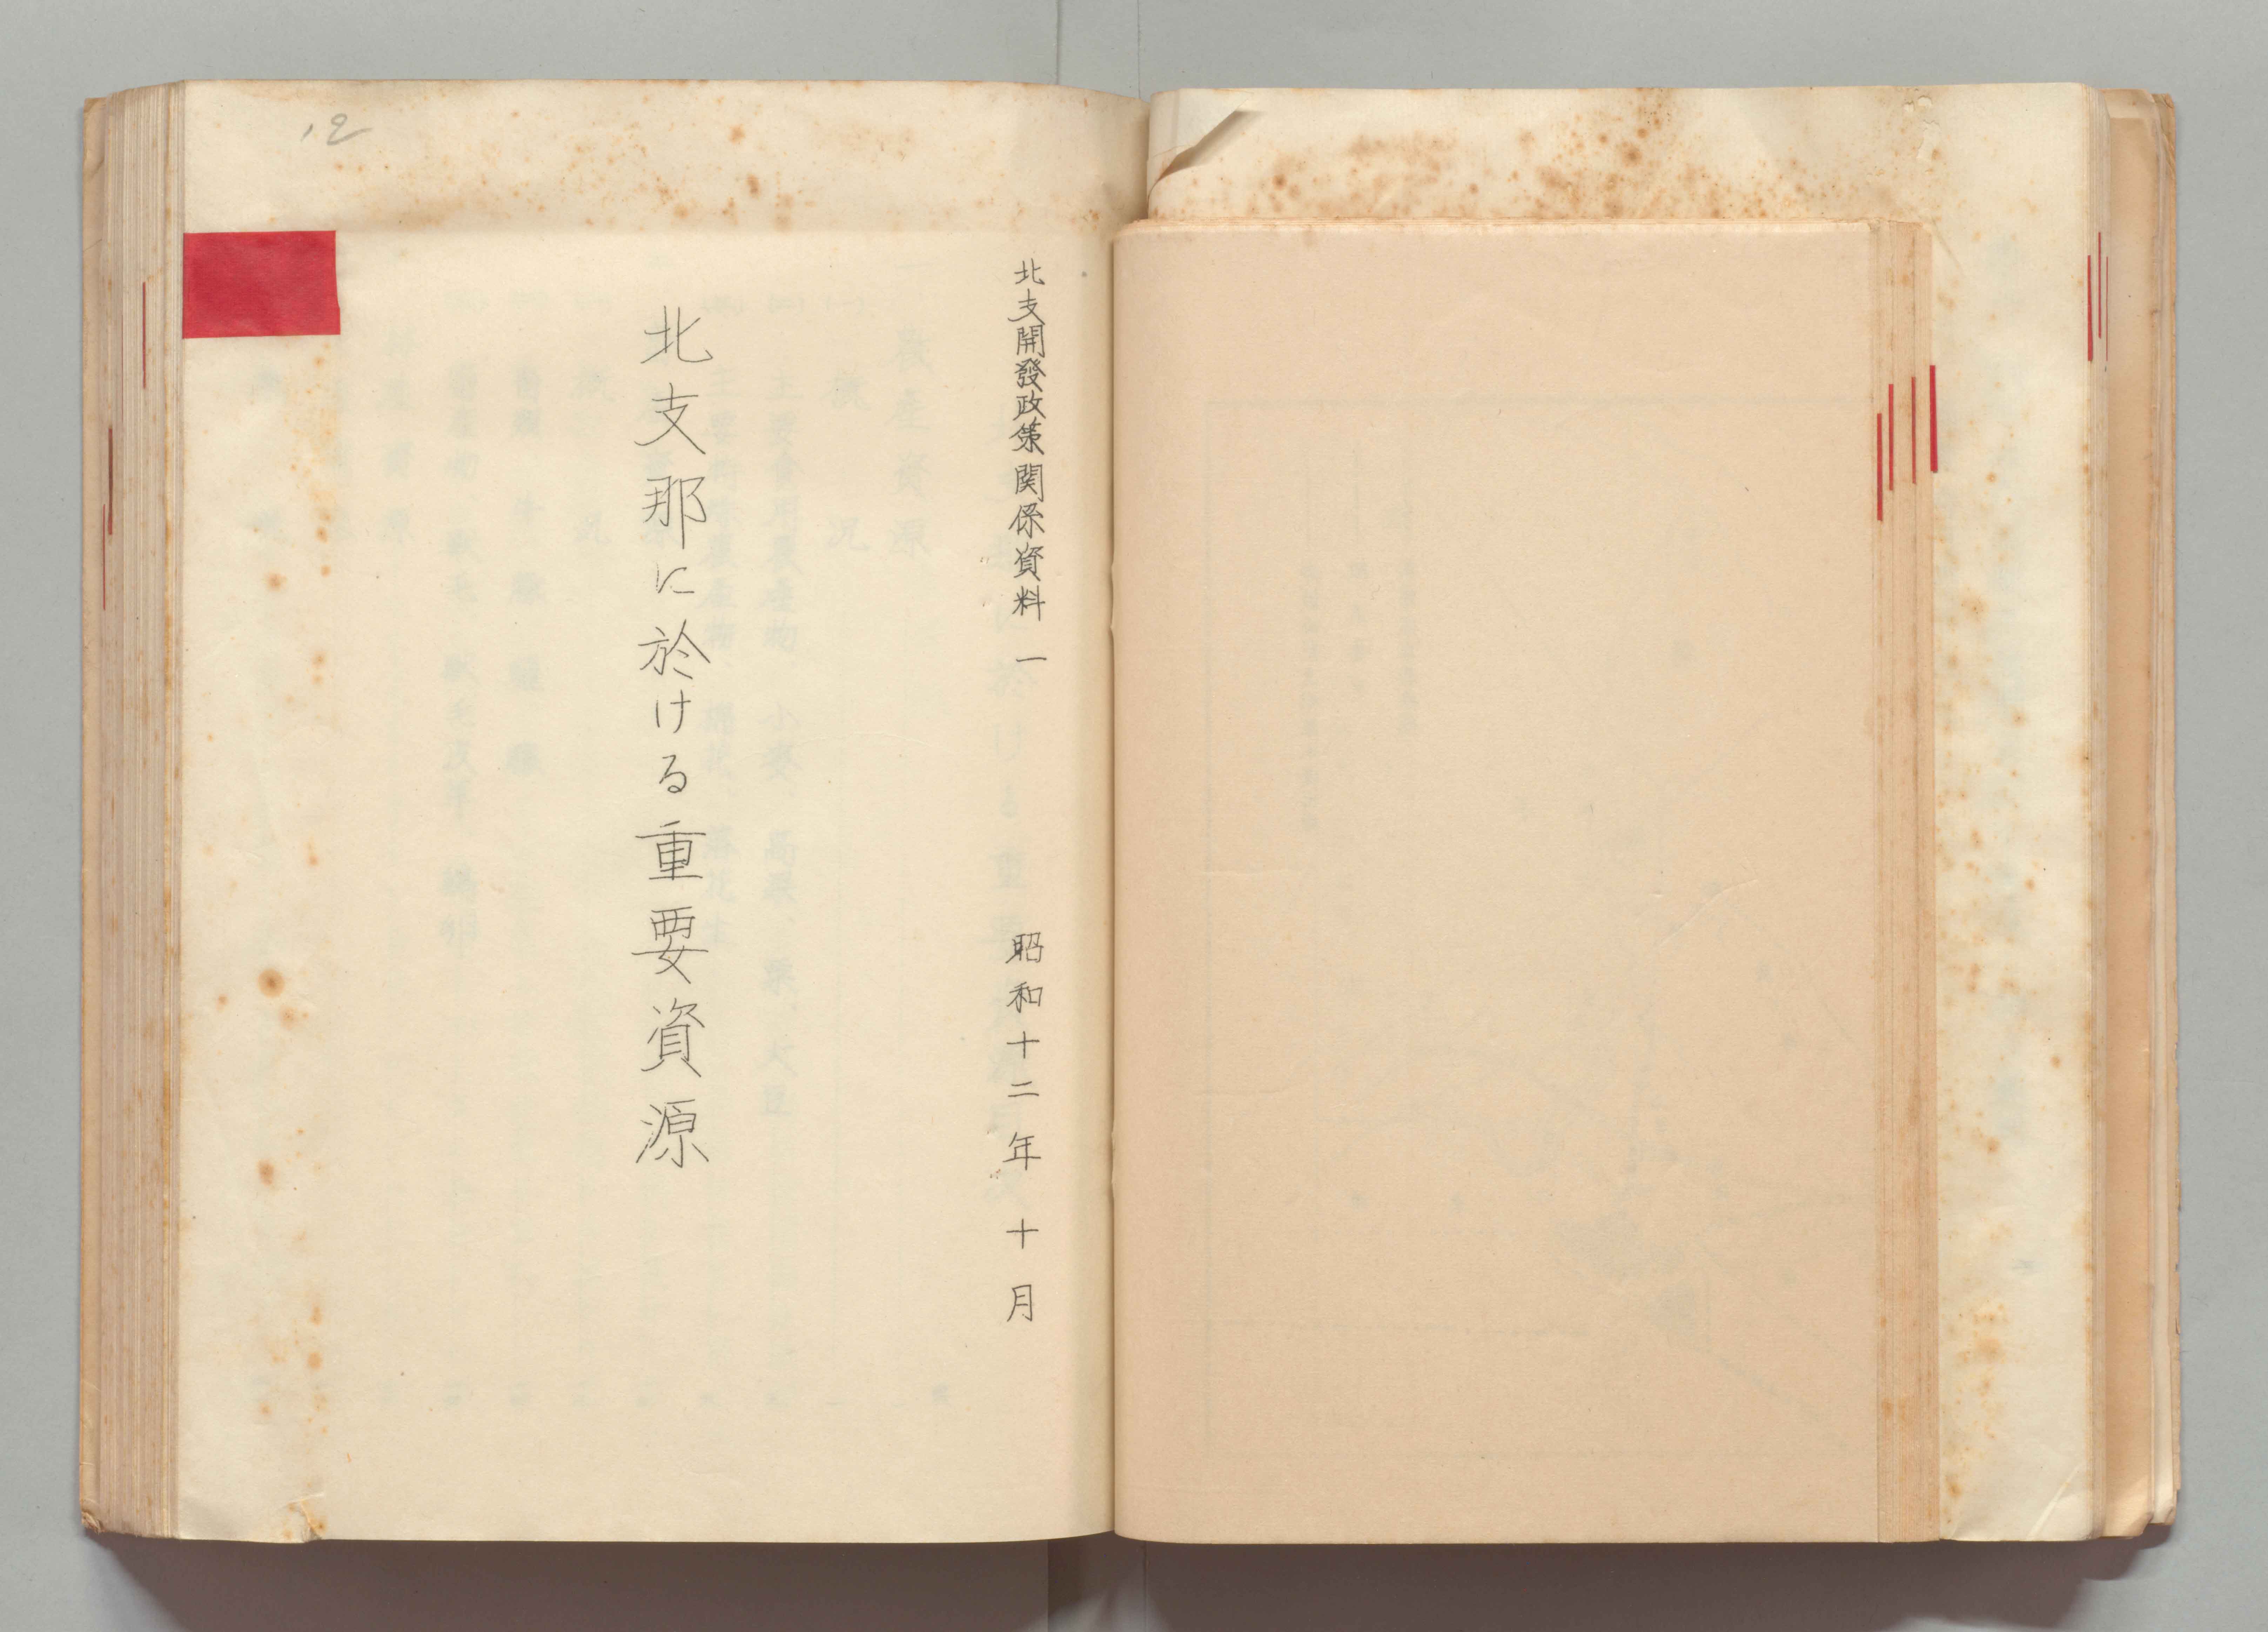 北支開發政策関係資料 一
昭和十二年十月
北支那に於ける重要資源
12